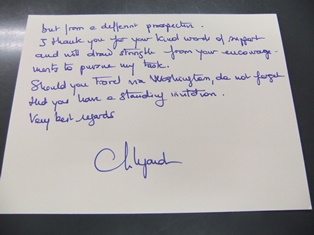 but from a different perspective.
I thank you for your kind words of support
and will draw strength from your encourage-
ments to pursue my task.
Should you travel via Washington, do not forget
that you have a standing invitation.
Very best regards